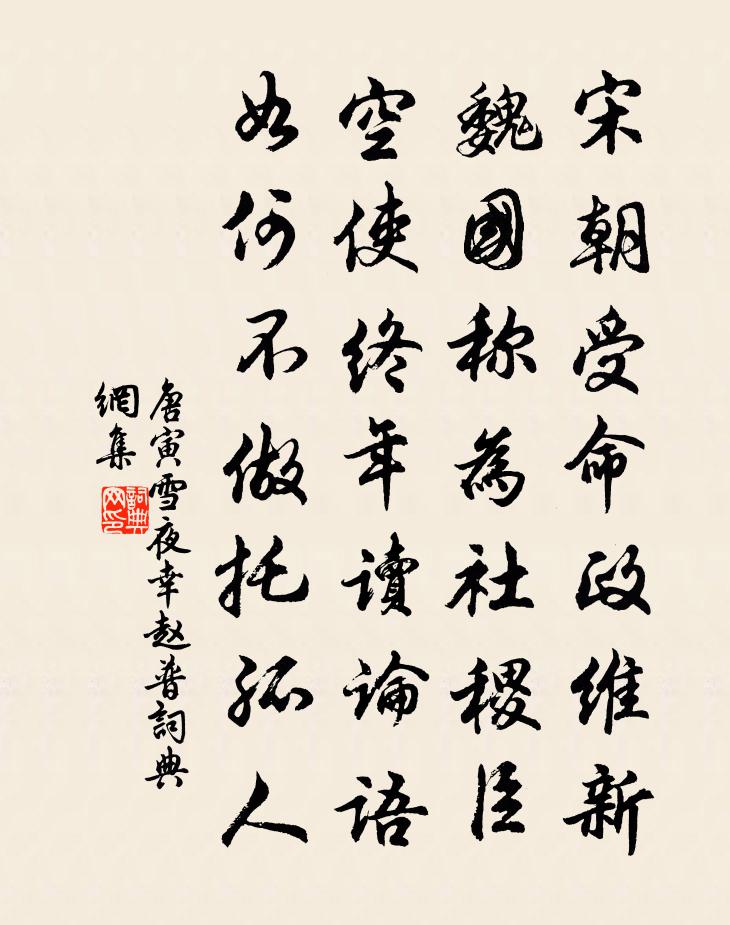 宋朝受命政維新
魏國称為社稷臣
空使終年讀論語
如何不做托孤人
唐寅雪夜幸赵普詞典
網集
詞典
网印